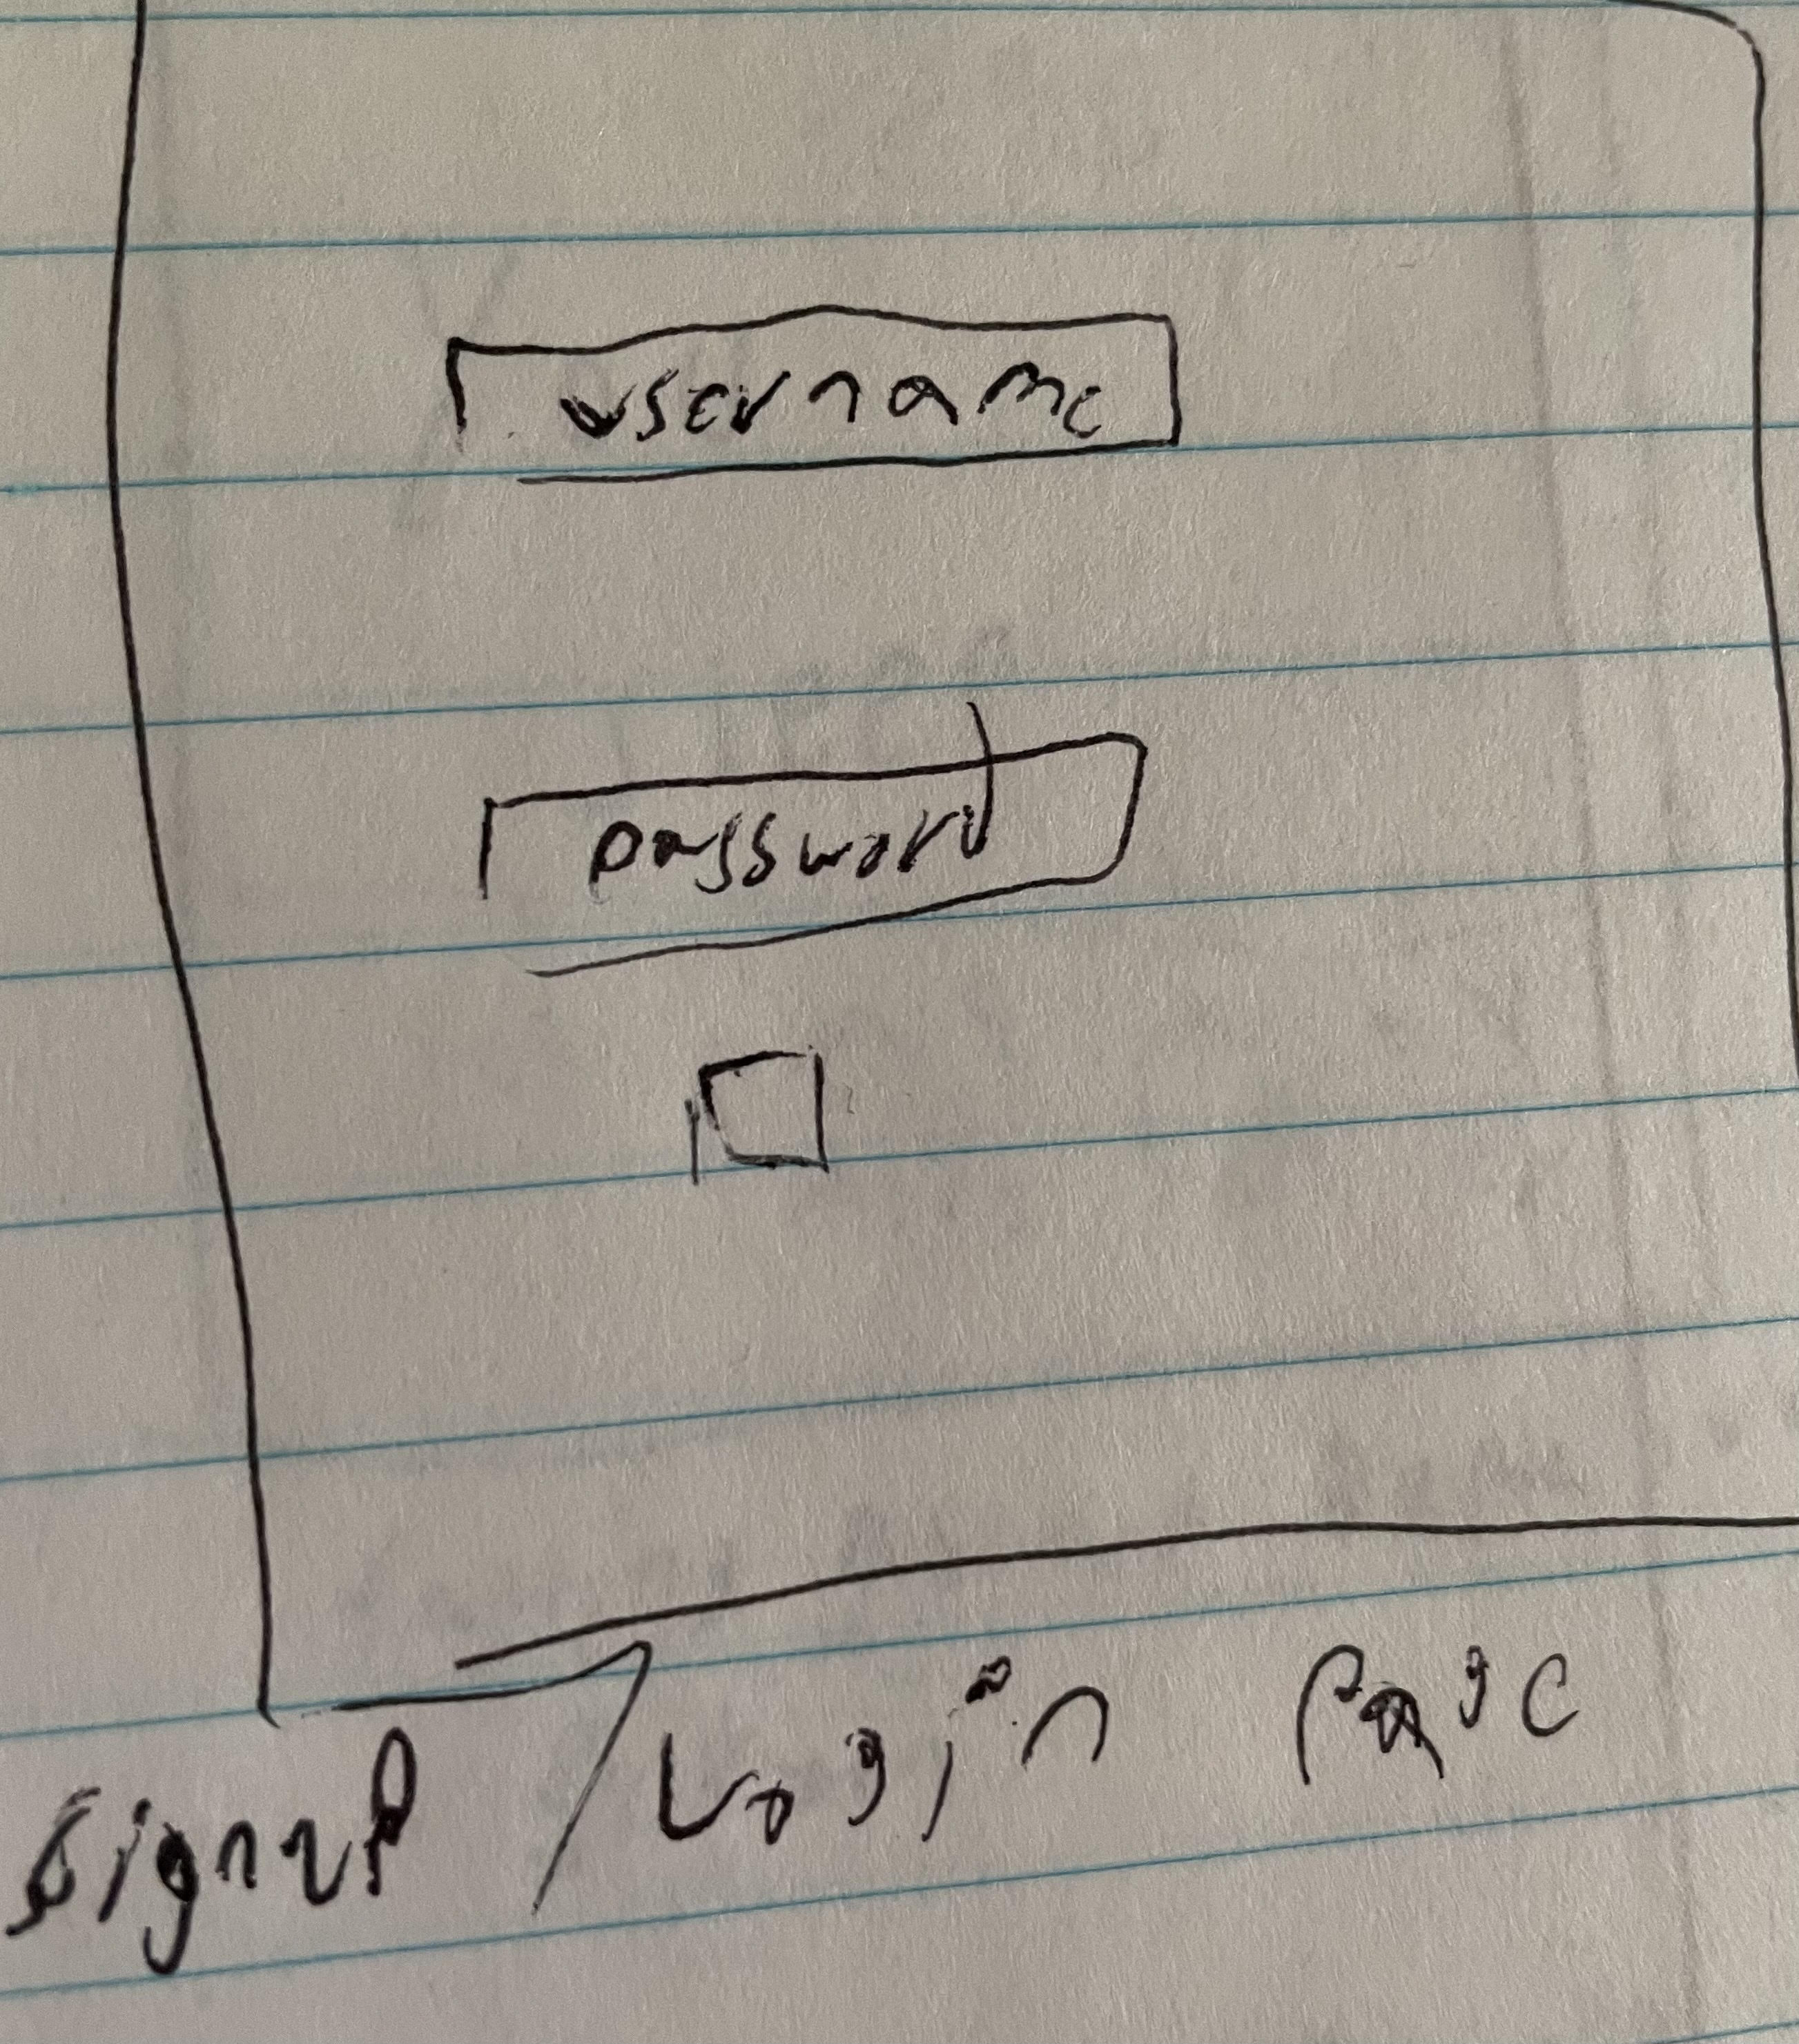 username
password
signup / Login Page